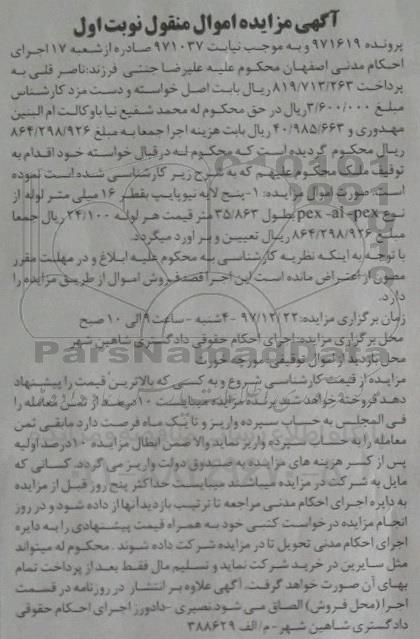 آگهی مزایده اموال منقول نوبت اول
پرونده ۹۷۱۶۱۹ و به موجب نیابت ۹۷۱۰۳۷ صادره از شعبه ۱۷ اجرای
احکام مدنی اصفهان محکوم علیه علیرضا جنتی فرزند: ناصر قلی به
پرداخت ۸۱۹/۷۱۳/۲۶۳ ریال بابت اصل خواسته و دست مزد کارشناس
مبلغ ۳/۶۰۰/۰۰۰ ریال در حق محکوم له محمد شفیع نیا باوکالت ام البنین
مهدوری و ۴۰/۹۸۵/۶۶۳ ریال بابت هزینه اجرا جمعا به مبلغ ۸۶۴/۲۹۸/۹۲۶
ریال محکوم گردیده است که محکوم له در قبال خواسته خود اقدام به
توقیف ملک محکوم علیهم که به شرح زیر کارشناسی شده است نموده
است: صورت اموال مزایده: ۱-پنج لایه نیوپایپ بقطر ۱۶ میلی متر لوله از
نوع pex -al -pex بطول ۳۵/۸۶۳ متر قیمت هر لوله ۲۴/۱۰۰ ریال جمعا
مبلغ ۸۶۴/۲۹۸/۹۲۶ ریال تعیین و بر اورد میگردد.
با توجه به اینکه نظریه کارشناسی به محکوم علیه ابلاغ و در مهلت مقرر
مصون از اعتراض مانده است این اجرا قصد فروش اموال از طریق مزایده را
دارد.
زمان برگزاری مزایده: ۹۷/۱۲/۲۲ -۴شنبه -ساعت ۹ الی ۱۰ صبح
محل برگزاری مزایده: اجرای احکام حقوقی دادگستری شاهین شهر
محل بازدید از اموال توقیفی: مورچه خورت
مزایده از قیمت کارشناسی شروع و به کسی که بالاترین قیمت را پیشنهاد
دهد فروخته خواهد شد برنده مزایده میبایست ۱۰درصد از ثمن معامله را
فی المجلس به حساب سپرده واریز و تا یک ماه فرصت دارد مابقی ثمن
معامله را به حساب سپرده واریز نماید والا ضمن ابطال مزایده ۱۰درصد اولیه
پس از کسر هزینه های مزایده به صندوق دولت واریز می گردد. کسانی که
مایل به شرکت در مزایده میباشند میبایست حداکثر پنج روز قبل از مزایده
به دایره اجرای احکام مدنی مراجعه تا ترتیب بازدید آنها از داده شود و در روز
انجام مزایده درخواست کتبی خود به همراه قیمت پیشنهادی را به دایره
اجرای احکام مدنی تحویل تا در مزایده شرکت داده شوند . محکوم له میتواند
مثل سایرین در خرید شرکت نماید و تسلیم مال فقط بعد از پرداخت تمام
بهای آن صورت خواهد گرفت. آگهی علاوه بر انتشار در روزنامه در قسمت
اجرا (محل فروش) الصاق می شود.نصیری -دادورز اجرای احکام حقوقی
دادگستری شاهین شهر- م/الف ۳۸۸۶۲۹
ParsNamadData